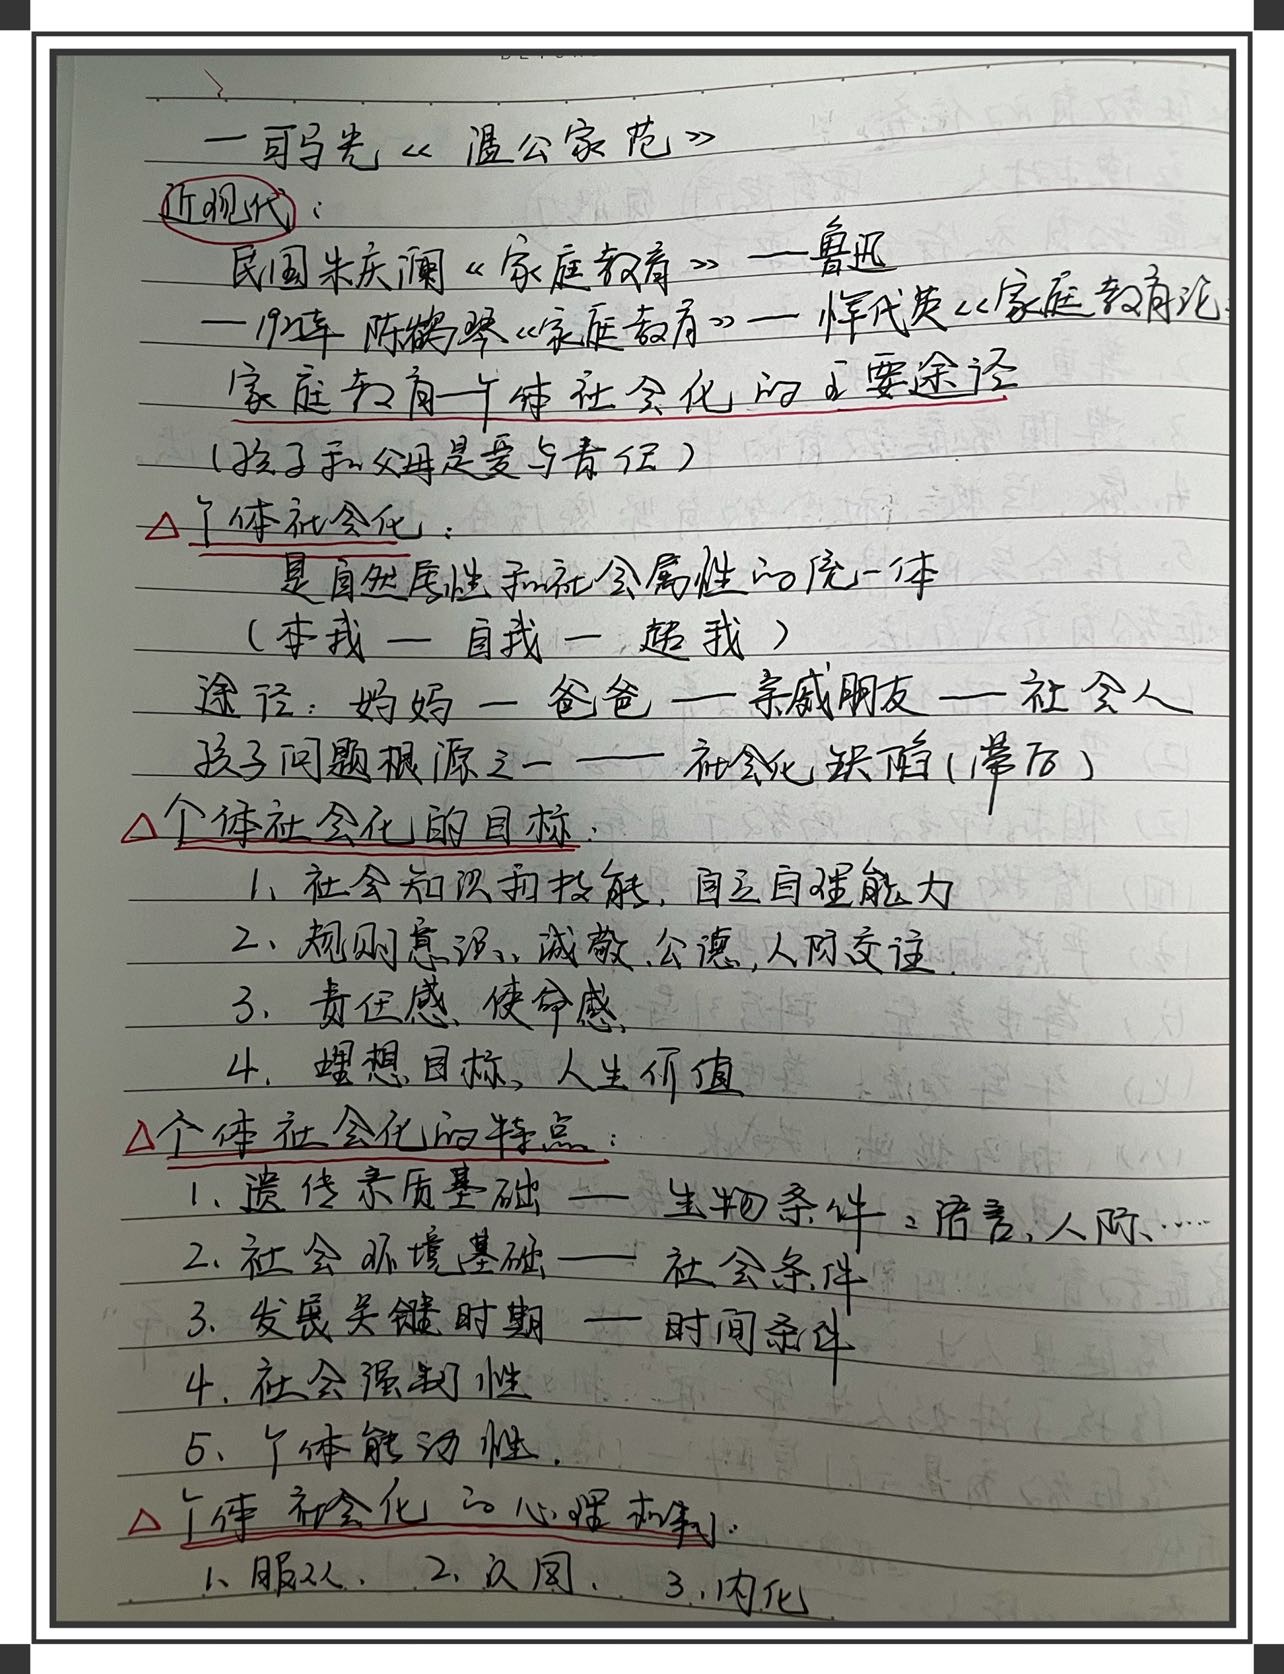 一司马光《温公家范》
近现代：
民国朱庆澜《家庭教育》——鲁迅
—192年 陈鹤琴《家庭教育》— 恽代英《家庭教育论
家庭教育—个体社会化的主要途径
（孩子和父母是爱与责任）
△个体社会化：
是自然属性和社会属性的统一体
（本我 — 自我 — 超我）
途径：妈妈 — 爸爸 — 亲戚朋友 — 社会人
孩子问题根源之一 —— 社会化缺陷（滞后）
△个体社会化的目标：
1、社会知识和技能，自立自理能力
2、规则意识、诚敬、公德，人际交往.
3、责任感、使命感、
4、理想目标、人生价值
△个体社会化的特点：
1、遗传素质基础 —— 生物条件：语言、人际、……
2、社会环境基础 —— 社会条件
3、发展关键时期 —— 时间条件
4、社会强制性
5、个体能动性.
△个体社会化的心理机制：
1、服从、 2、认同、 3、内化